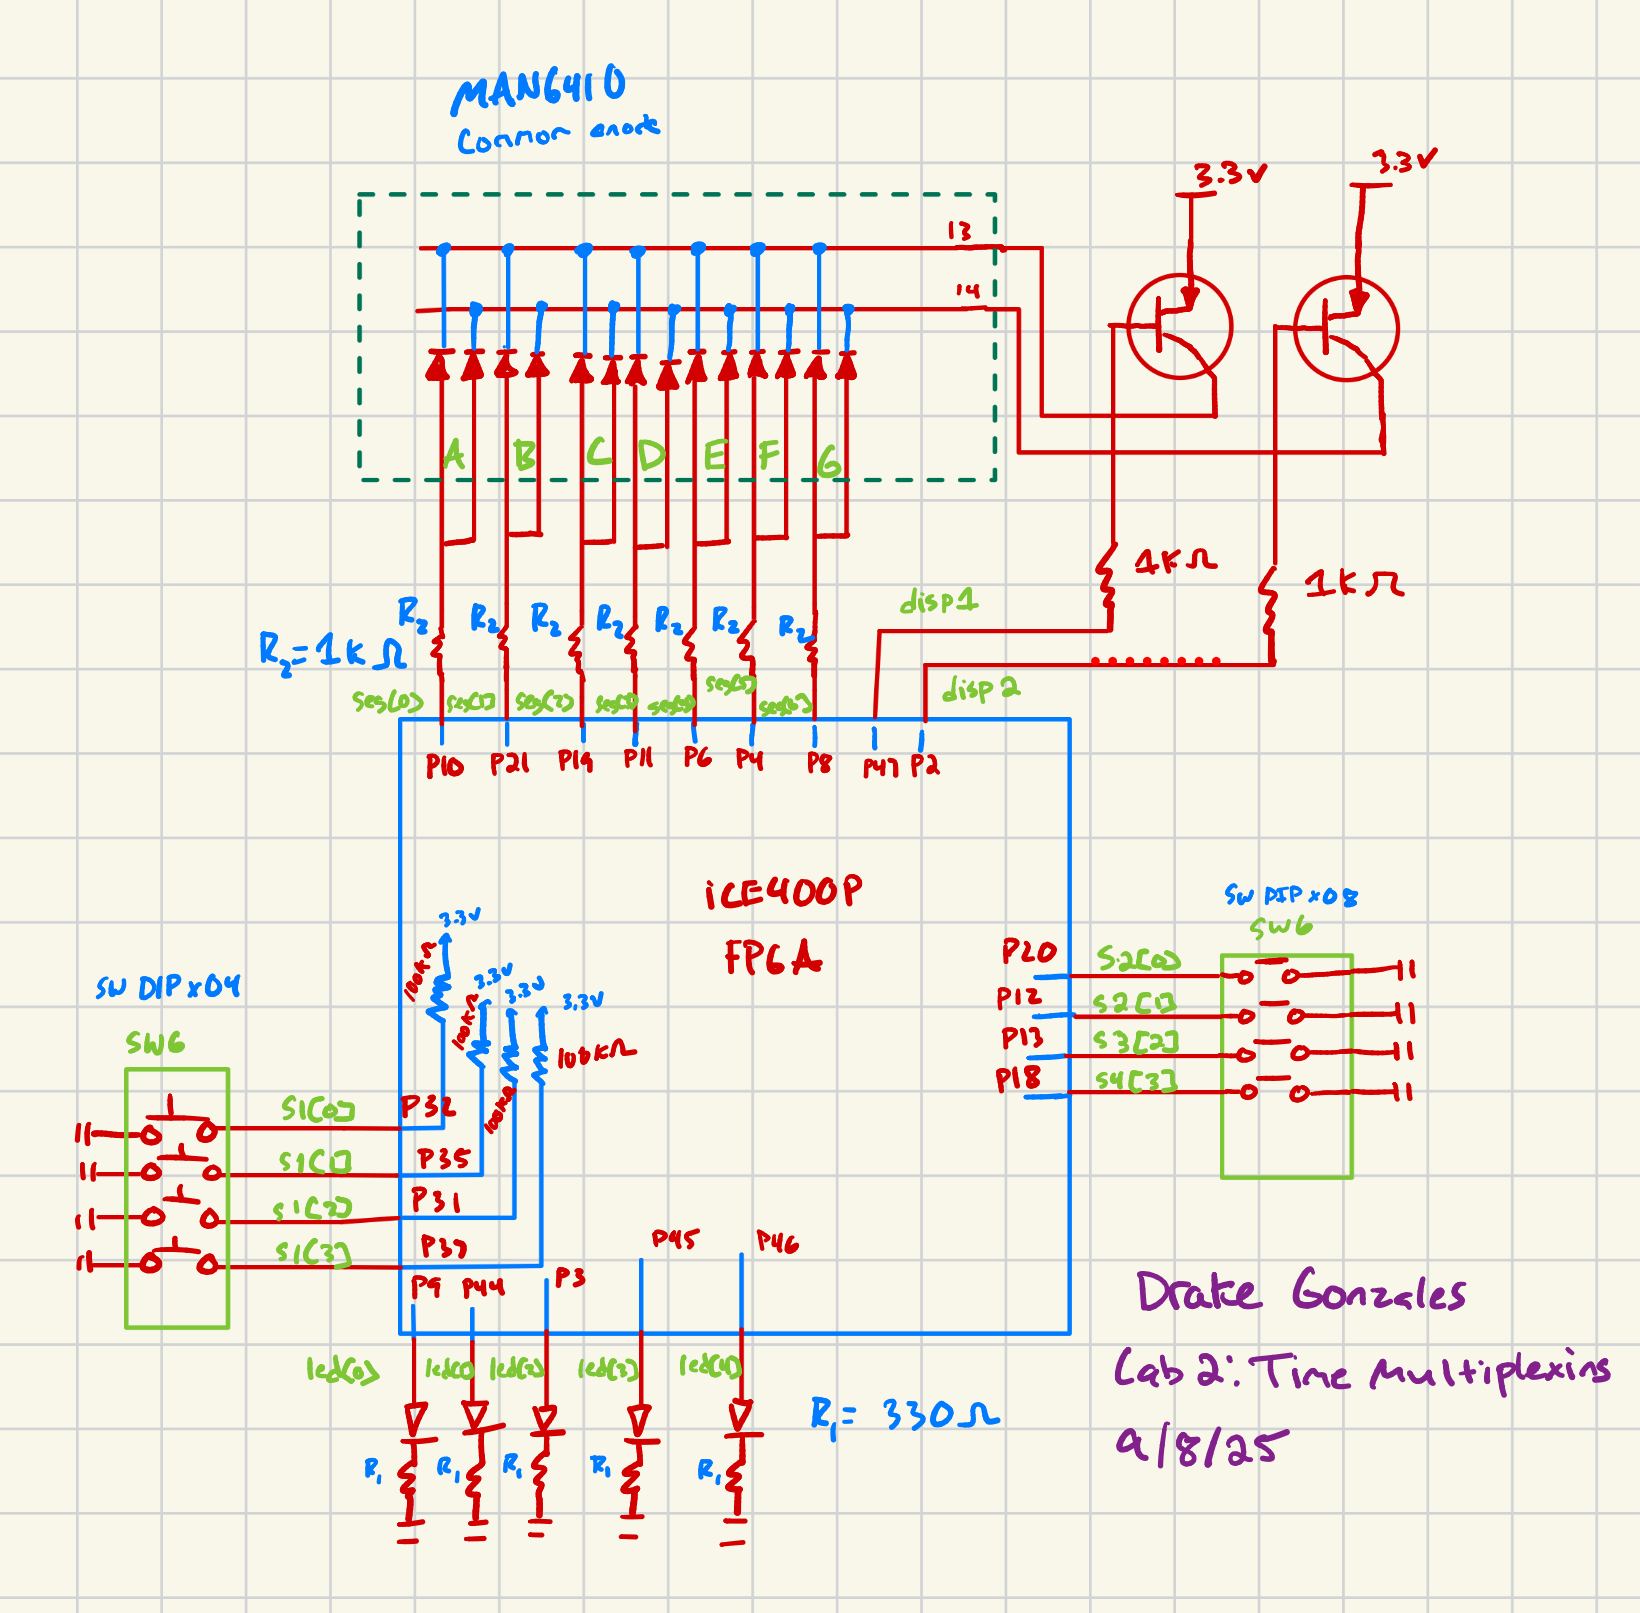 MAN6410
Common anode
3.3V
3.3V
13
14
A B C D E F G
1KΩ
1KΩ
disp1
disp2
R2 R2 R2 R2 R2 R2 R2
R2=1KΩ
seg[0] seg[1] seg[2] seg[3] seg[4] seg[5] seg[6]
P10 P21 P19 P11 P6 P4 P8 P47 P2
iCE400P
FPGA
3.3V
100KΩ
3.3V
100KΩ
3.3V
100KΩ
3.3V
100KΩ
SW DIPx04
SW6
S1[0] P32
S1[1] P35
S1[2] P31
S1[3] P37
SW DIPx08
SW6
P20 S2[0]
P12 S2[1]
P13 S3[2]
P18 S4[3]
P9 P44 P3 P45 P46
led[0] led[1] led[2] led[3] led[4]
R1 R1 R1 R1 R1
R1= 330Ω
Drake Gonzales
Lab 2: Time Multiplexing
9/8/25